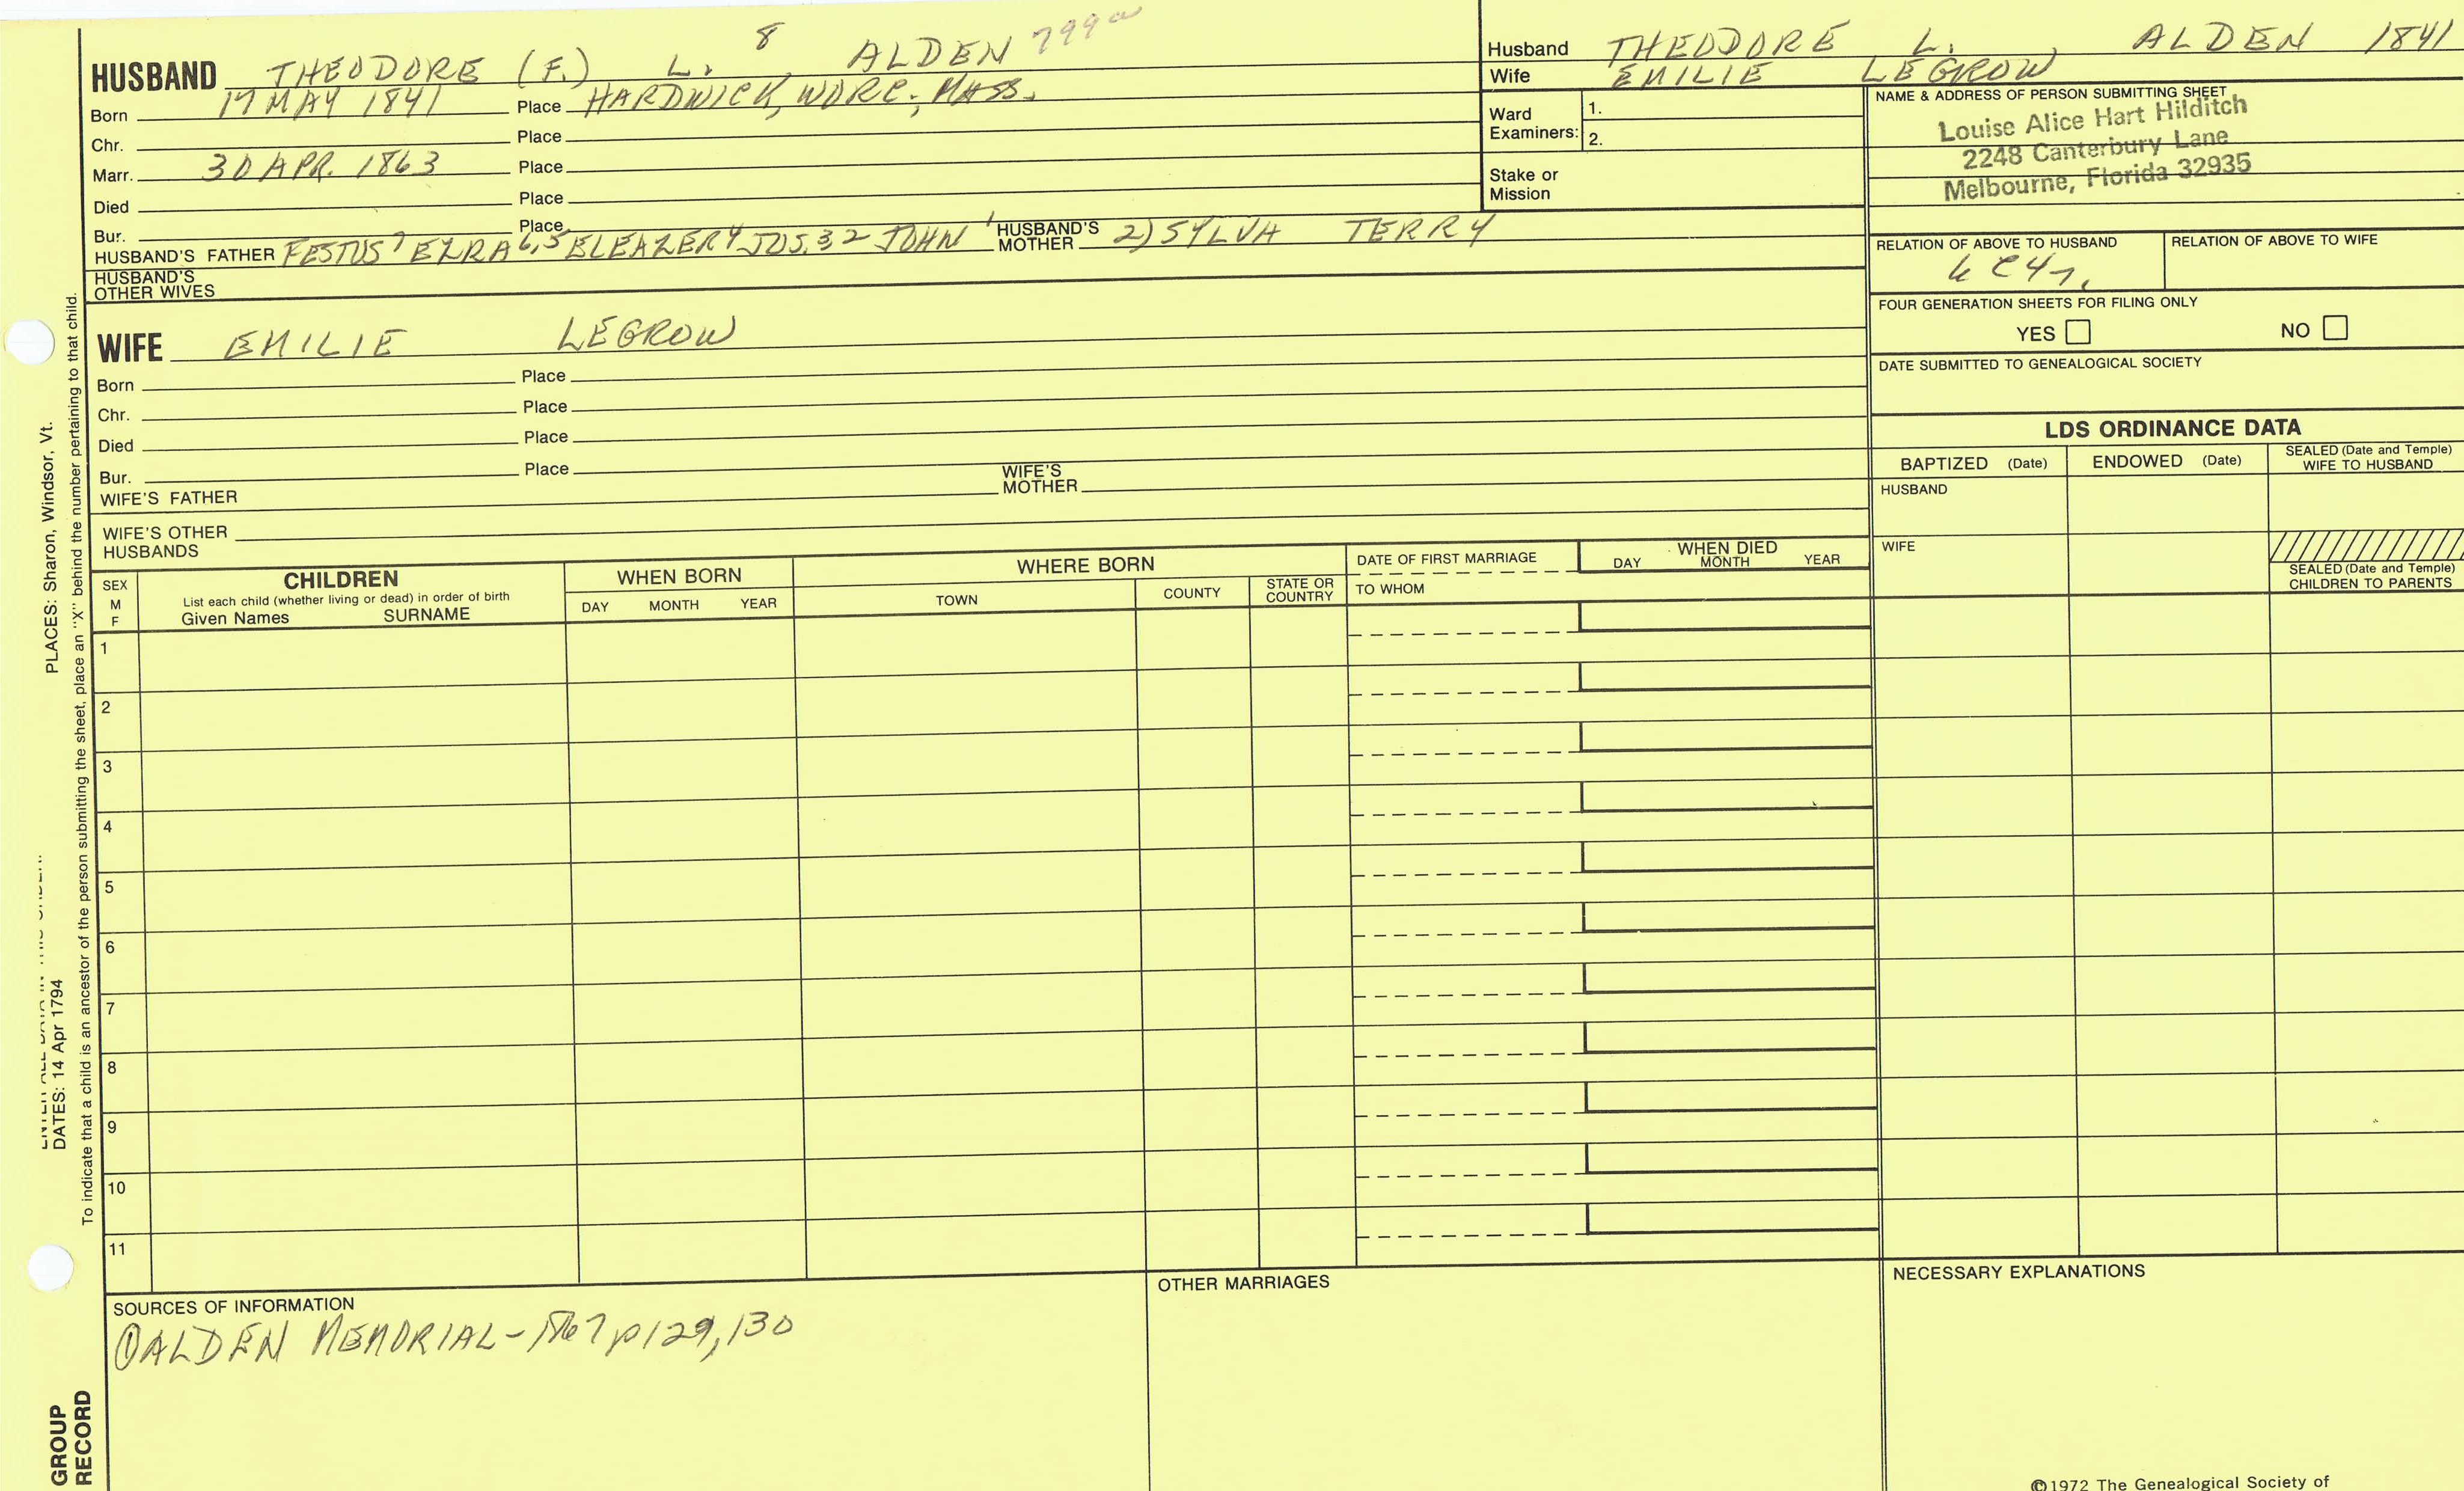 HUSBAND THEODORE (F.) L. 8 ALDEN 799a
Born 17 MAY 1841 Place HARDWICK, WORC., MASS.
Chr. Place
Marr. 30 APR. 1863 Place
Died Place
Bur. Place
HUSBAND'S FATHER FESTUS 7 EZRA 6,5 ELEAZER 4 JOS. 3 2 JOHN 1 HUSBAND'S MOTHER 2) SYLVA TERRY
HUSBAND'S
OTHER WIVES
Husband THEODORE L. , ALDEN 1841
Wife EMILIE LEGROW
Ward
Examiners: 1.
2.
Stake or
Mission
NAME & ADDRESS OF PERSON SUBMITTING SHEET
Louise Alice Hart Hilditch
2248 Canterbury Lane
Melbourne, Florida 32935
RELATION OF ABOVE TO HUSBAND RELATION OF ABOVE TO WIFE
FOUR GENERATION SHEETS FOR FILING ONLY
YES NO
DATE SUBMITTED TO GENEALOGICAL SOCIETY
WIFE EMILIE LEGROW
Born Place
Chr. Place
Died Place
Bur. Place
WIFE'S FATHER WIFE'S MOTHER
WIFE'S OTHER
HUSBANDS
LDS ORDINANCE DATA
BAPTIZED (Date) ENDOWED (Date) SEALED (Date and Temple) WIFE TO HUSBAND
HUSBAND
WIFE
SEALED (Date and Temple)
CHILDREN TO PARENTS
SEX
M
F
CHILDREN
List each child (whether living or dead) in order of birth
Given Names SURNAME
WHEN BORN
DAY MONTH YEAR
WHERE BORN
TOWN COUNTY STATE OR COUNTRY
DATE OF FIRST MARRIAGE
TO WHOM
WHEN DIED
DAY MONTH YEAR
1
2
3
4
5
6
7
8
9
10
11
SOURCES OF INFORMATION
① ALDEN MEMORIAL - 1867 p 129, 130
OTHER MARRIAGES
NECESSARY EXPLANATIONS
©1972 The Genealogical Society of
PLACES: Sharon, Windsor, Vt.
DATES: 14 Apr 1794
To indicate that a child is an ancestor of the person submitting the sheet, place an "X" behind the number pertaining to that child.
GROUP
RECORD